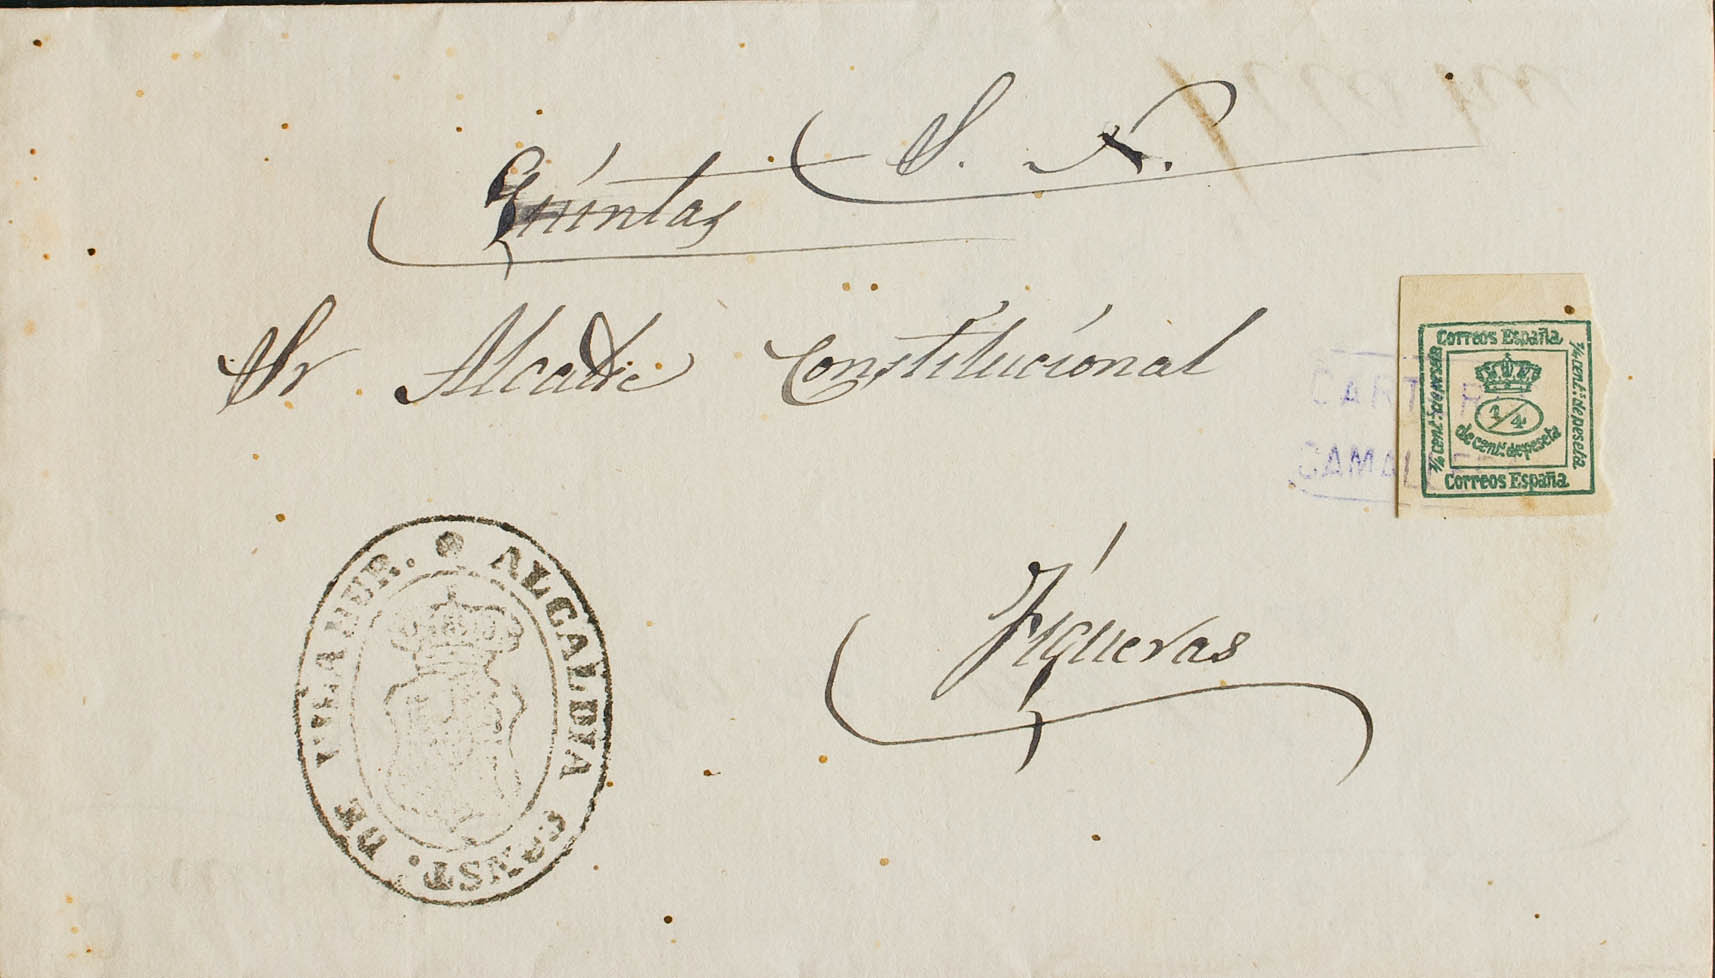 S. N.
Quintas
Sr Alcalde Constitucional
Figueras
Correos España
1/4 cent.º de peseta
1/4
de cent.º de peseta
Correos España
CARTERIA
CAMALLERA
ALCALDIA CONST. DE VILABER.